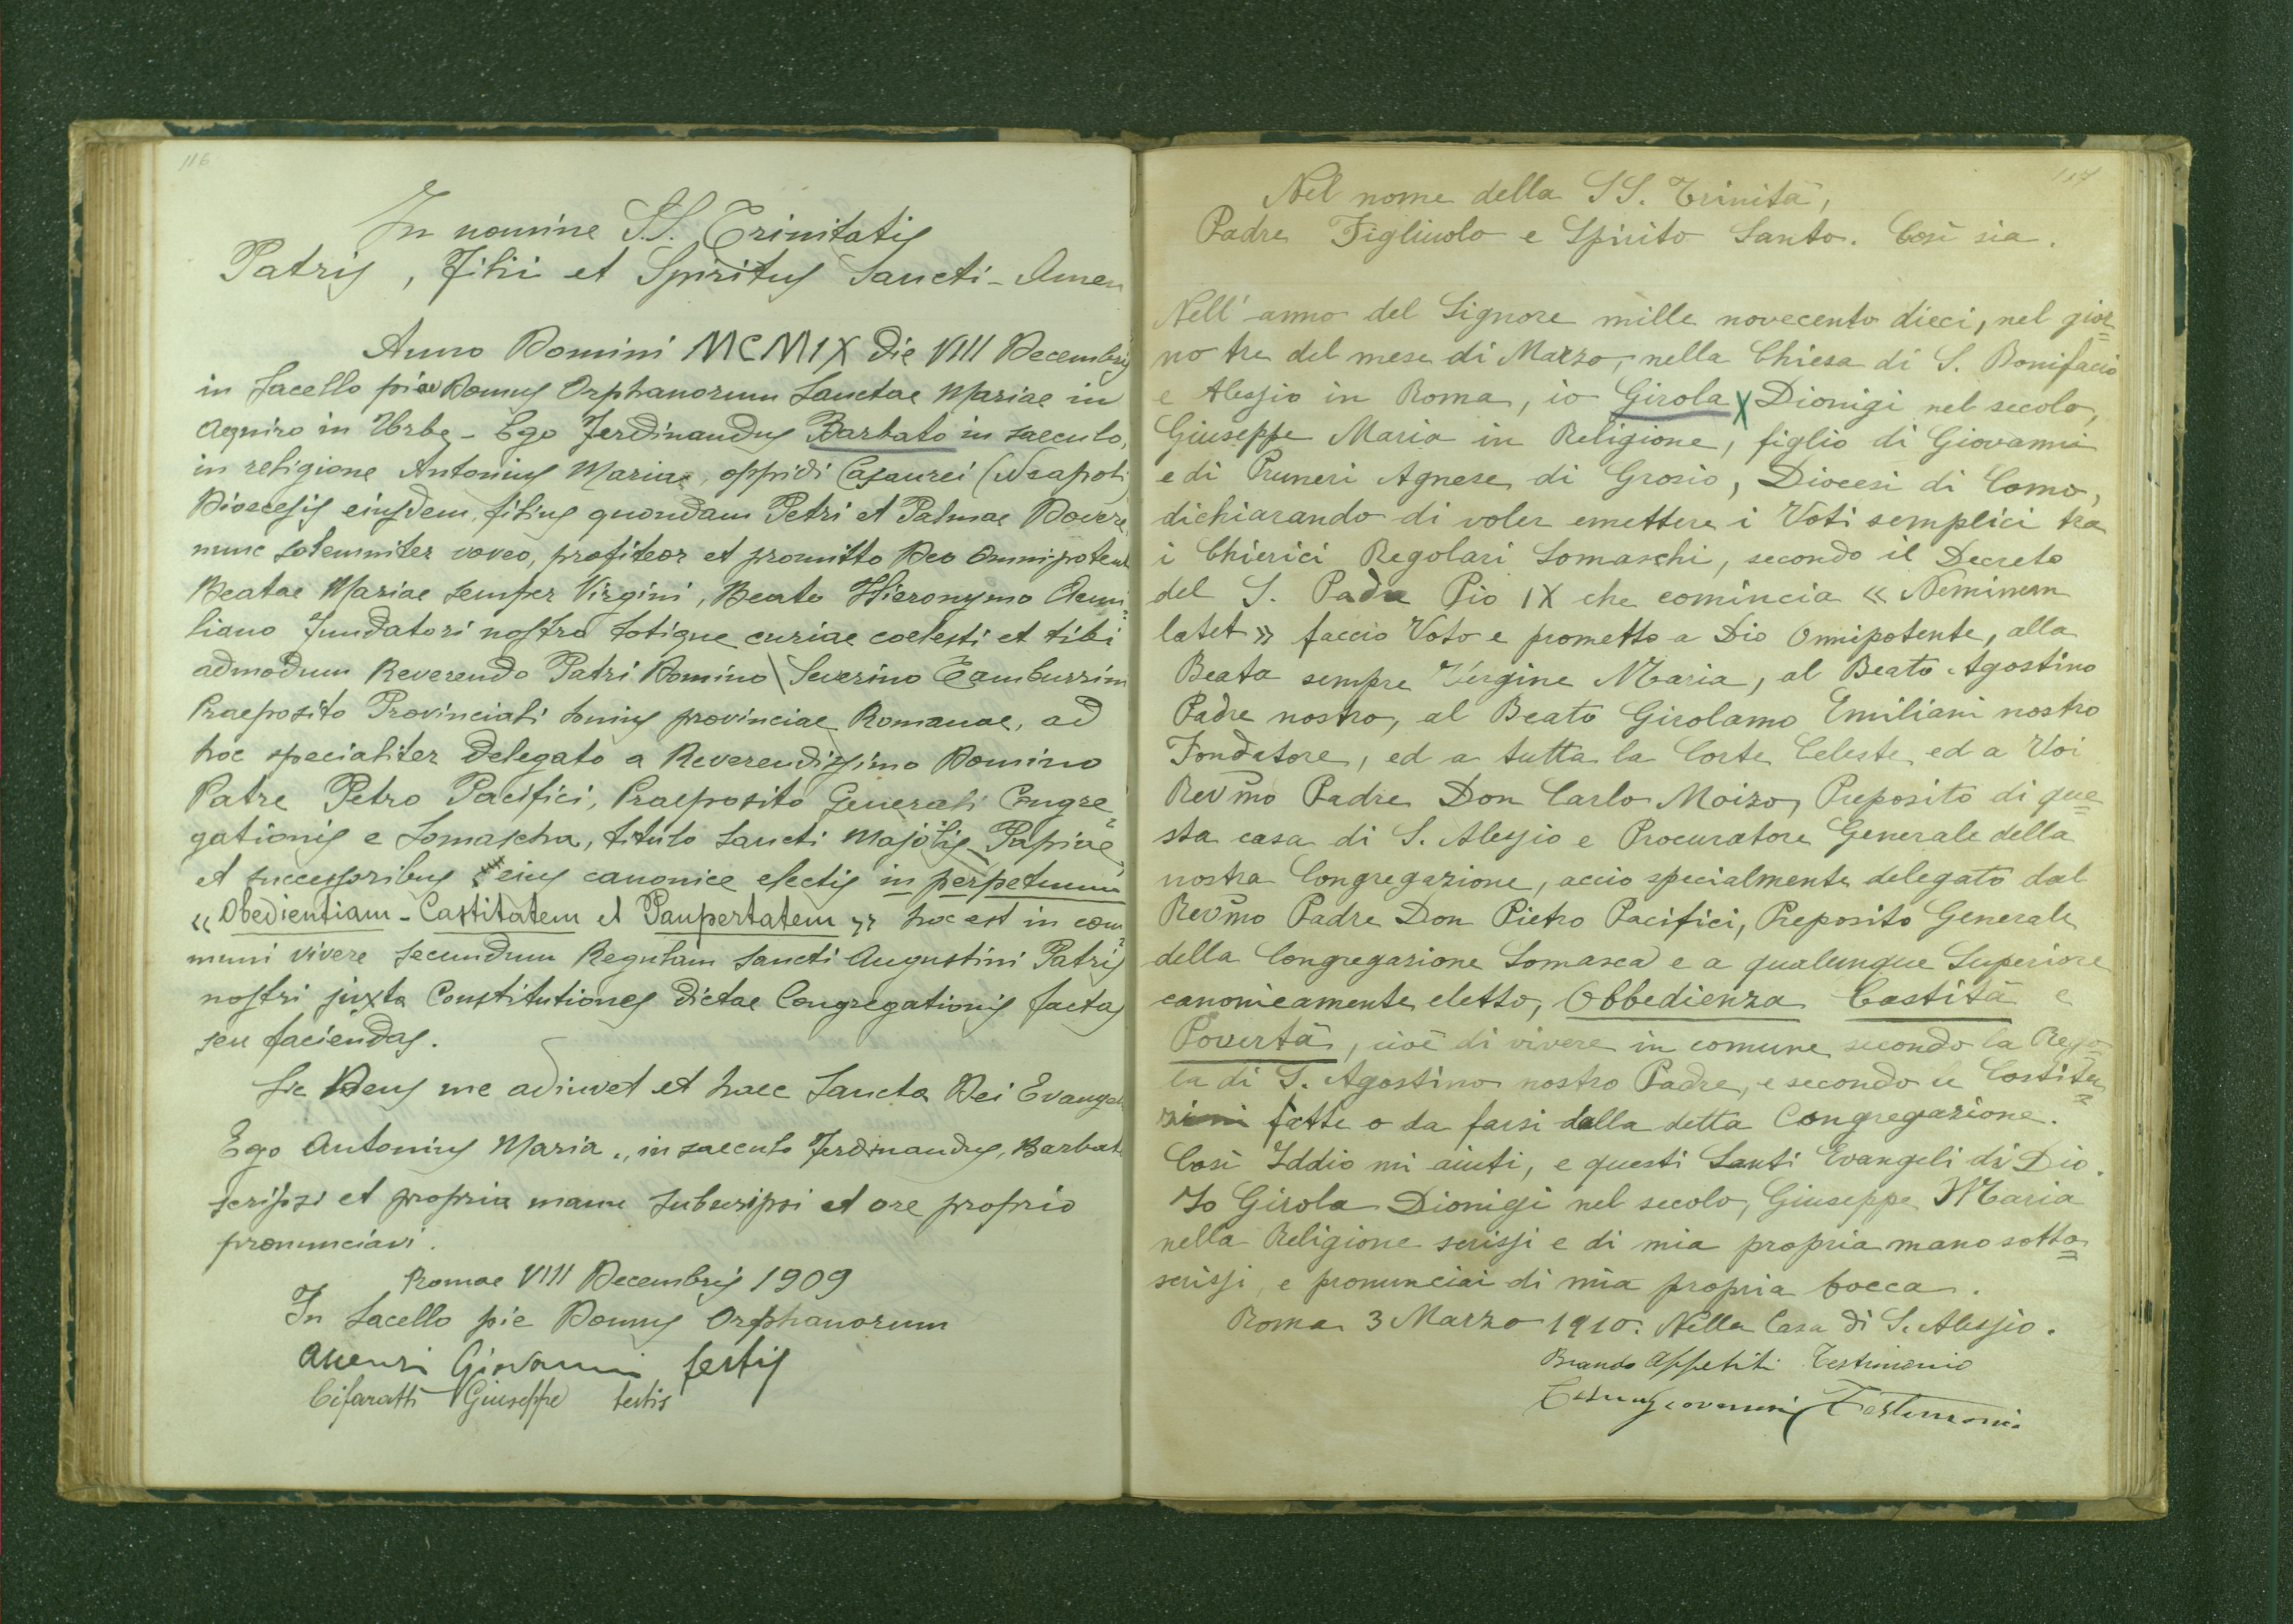 116
In nomine S.S. Trinitatis
Patris, Filii et Spiritus Sancti - Amen
Anno Domini MCMIX die VIII Decembris
in Sacello piae Domus Orphanorum Sanctae Mariae in
Aequiro in Urbe - Ego Ferdinandus Barbato in saeculo,
in religione Antonius Maria, oppidi Casaurei (Neapoli
Dioecesis eiusdem, filius quondam Petri et Palmae
nunc solemniter voveo, profiteor et promitto Deo Omnipotenti
Beatae Mariae semper Virgini, Beato Hieronymo Aemi=
liano Fundatori nostro totique curiae coelesti et tibi
admodum Reverendo Patri Domino Severino Tamburrini
Praeposito Provinciali huius provinciae Romanae, ad
hoc specialiter delegato a Reverendissimo Domino
Patre Petro Pacifici, Praeposito Generali Congre=
gationis e Somascha, titulo Sancti Majolis Papiae,
et successoribus eius canonice electis in perpetuum
«Obedientiam - Castitatem et Paupertatem» hoc est in com=
muni vivere secundum Regulam Sancti Augustini Patris
nostri juxta Constitutiones dictae Congregationis factas
seu faciendas.
Sic Deus me adiuvet et haec Sancta Dei Evangel
Ego Antonius Maria, in saeculo Ferdinandus, Barbato
scripsi et propria manu subscripsi et ore proprio
pronunciavi.
Romae VIII Decembris 1909
In Sacello pie Domus Orphanorum
Giovanni testis
Cifaratti Giuseppe testis
117
Nel nome della SS. Trinità,
Padre Figliuolo e Spirito Santo. Così sia.
Nell'anno del Signore mille novecento dieci, nel gior=
no tre del mese di Marzo, nella Chiesa di S. Bonifacio
e Alessio in Roma, io Girola X Dionigi nel secolo,
Giuseppe Maria in Religione, figlio di Giovanni
e di Pruneri Agnese di Grosio, Diocesi di Como,
dichiarando di voler emettere i Voti semplici tra
i Chierici Regolari Somaschi, secondo il Decreto
del S. Padre Pio IX che comincia «Neminem
latet» faccio Voto e prometto a Dio Onnipotente, alla
Beata sempre Vergine Maria, al Beato Agostino
Padre nostro, al Beato Girolamo Emiliani nostro
Fondatore, ed a tutta la Corte Celeste, ed a Voi
Revmo Padre Don Carlo Moizo, Preposito di que=
sta casa di S. Alessio e Procuratore Generale della
nostra Congregazione, acciò specialmente delegato dal
Revmo Padre Don Pietro Pacifici, Preposito Generale
della Congregazione Somasca e a qualunque Superiore
canonicamente eletto, Obbedienza Castità e
Povertà, cioè di vivere in comune secondo la Rego
la di S. Agostino nostro Padre, e secondo le Costitu=
zioni fatte o da farsi dalla detta Congregazione.
Così Iddio mi aiuti, e questi Santi Evangeli di Dio.
Io Girola Dionigi nel secolo, Giuseppe Maria
nella Religione scrissi e di mia propria mano sotto=
scrissi, e pronunciai di mia propria bocca.
Roma 3 Marzo 1910. Nella Casa di S. Alessio.
Brando Appetiti Testimonio
Giovanni Testimonio